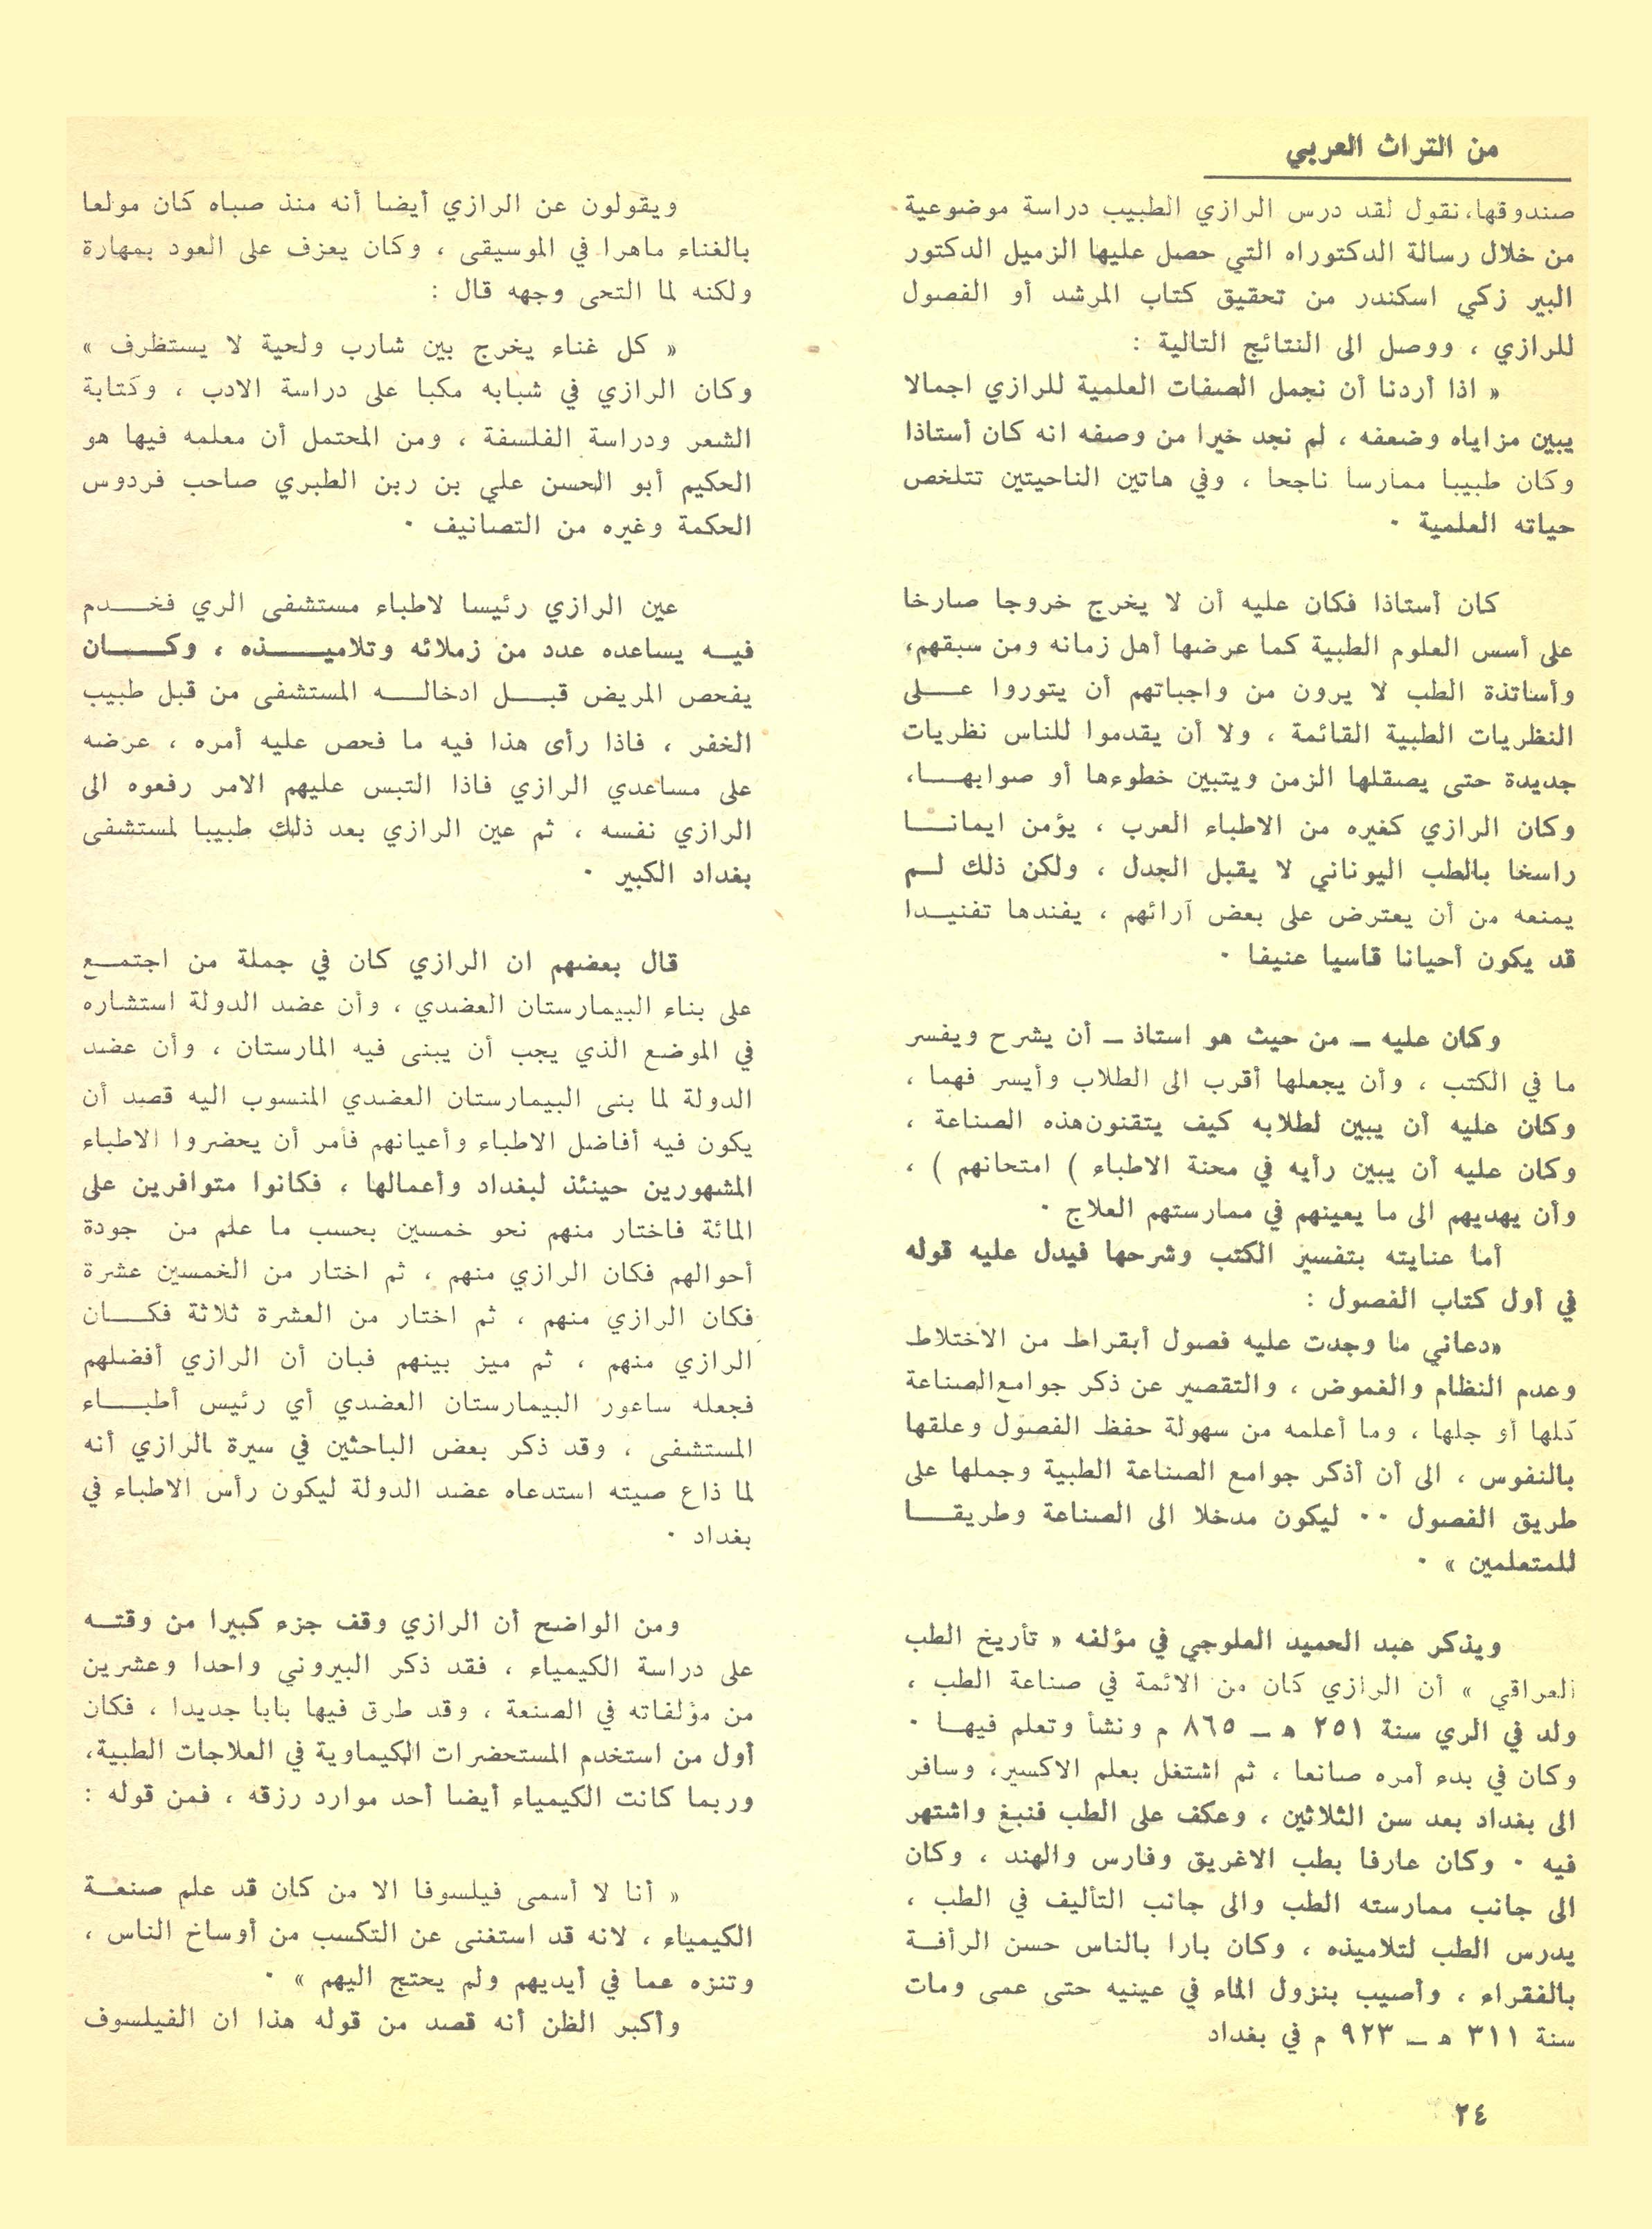 من التراث العربي
صندوقها، نقول لقد درس الرازي الطبيب دراسة موضوعية
من خلال رسالة الدكتوراه التي حصل عليها الزميل الدكتور
البير زكي اسكندر من تحقيق كتاب المرشد أو الفصول
للرازي ، ووصل الى النتائج التالية :
« اذا أردنا أن نجمل الصفات العلمية للرازي اجمالا
يبين مزاياه وضعفه ، لم نجد خيرا من وصفه انه كان أستاذا
وكان طبيبا ممارسا ناجحا ، وفي هاتين الناحيتين تتلخص
حياته العلمية ·
كان أستاذا فكان عليه أن لا يخرج خروجا صارخا
على أسس العلوم الطبية كما عرضها أهل زمانه ومن سبقهم،
وأساتذة الطب لا يرون من واجباتهم أن يتوروا عــلى
النظريات الطبية القائمة ، ولا أن يقدموا للناس نظريات
جديدة حتى يصقلها الزمن ويتبين خطوءها أو صوابهــا،
وكان الرازي كغيره من الاطباء العرب ، يؤمن ايمانــا
راسخا بالطب اليوناني لا يقبل الجدل ، ولكن ذلك لــم
يمنعه من أن يعترض على بعض آرائهم ، يفندها تفنيــدا
قد يكون أحيانا قاسيا عنيفا ·
وكان عليه ــ من حيث هو استاذ ــ أن يشرح ويفسر
ما في الكتب ، وأن يجعلها أقرب الى الطلاب وأيسر فهما ،
وكان عليه أن يبين لطلابه كيف يتقنون هذه الصناعة ،
وكان عليه أن يبين رأيه في محنة الاطباء ) امتحانهم ) ،
وأن يهديهم الى ما يعينهم في ممارستهم العلاج ·
أما عنايته بتفسير الكتب وشرحها فيدل عليه قوله
في أول كتاب الفصول :
«دعاني ما وجدت عليه فصول أبقراط من الاختلاط
وعدم النظام والغموض ، والتقصير عن ذكر جوامع الصناعة
كلها أو جلها ، وما أعلمه من سهولة حفظ الفصول وعلقها
بالنفوس ، الى أن أذكر جوامع الصناعة الطبية وجملها على
طريق الفصول ·· ليكون مدخلا الى الصناعة وطريقــا
للمتعلمين » ·
ويذكر عبد الحميد العلوجي في مؤلفه « تأريخ الطب
العراقي » أن الرازي كان من الائمة في صناعة الطب ،
ولد في الري سنة ٢٥١ هـ ــ ٨٦٥ م ونشأ وتعلم فيهــا ·
وكان في بدء أمره صانعا ، ثم اشتغل بعلم الاكسير، وسافر
الى بغداد بعد سن الثلاثين ، وعكف على الطب فنبغ واشتهر
فيه · وكان عارفا بطب الاغريق وفارس والهند ، وكان
الى جانب ممارسته الطب والى جانب التأليف في الطب ،
يدرس الطب لتلاميذه ، وكان بارا بالناس حسن الرأفــة
بالفقراء ، وأصيب بنزول الماء في عينيه حتى عمى ومات
سنة ٣١١ هـ ــ ٩٢٣ م في بغداد
ويقولون عن الرازي أيضا أنه منذ صباه كان مولعا
بالغناء ماهرا في الموسيقى ، وكان يعزف على العود بمهارة
ولكنه لما التحى وجهه قال :
« كل غناء يخرج بين شارب ولحية لا يستظرف »
وكان الرازي في شبابه مكبا على دراسة الادب ، وكتابة
الشعر ودراسة الفلسفة ، ومن المحتمل أن معلمه فيها هو
الحكيم أبو الحسن علي بن ربن الطبري صاحب فردوس
الحكمة وغيره من التصانيف ·
عين الرازي رئيسا لاطباء مستشفى الري فخــدم
فيــه يساعده عدد من زملائه وتلاميــذه ، وكــان
يفحص المريض قبــل ادخالــه المستشفى من قبل طبيب
الخفر ، فاذا رأى هذا فيه ما فحص عليه أمره ، عرضه
على مساعدي الرازي فاذا التبس عليهم الامر رفعوه الى
الرازي نفسه ، ثم عين الرازي بعد ذلك طبيبا لمستشفى
بغداد الكبير ·
قال بعضهم ان الرازي كان في جملة من اجتمــع
على بناء البيمارستان العضدي ، وأن عضد الدولة استشاره
في الموضع الذي يجب أن يبنى فيه المارستان ، وأن عضد
الدولة لما بنى البيمارستان العضدي المنسوب اليه قصد أن
يكون فيه أفاضل الاطباء وأعيانهم فأمر أن يحضروا الاطباء
المشهورين حينئذ لبغداد وأعمالها ، فكانوا متوافرين على
المائة فاختار منهم نحو خمسين بحسب ما علم من جودة
أحوالهم فكان الرازي منهم ، ثم اختار من الخمسين عشرة
فكان الرازي منهم ، ثم اختار من العشرة ثلاثة فكــان
الرازي منهم ، ثم ميز بينهم فبان أن الرازي أفضلهم
فجعله ساعور البيمارستان العضدي أي رئيس أطبــاء
المستشفى ، وقد ذكر بعض الباحثين في سيرة الرازي أنه
لما ذاع صيته استدعاه عضد الدولة ليكون رأس الاطباء في
بغداد ·
ومن الواضح أن الرازي وقف جزء كبيرا من وقتــه
على دراسة الكيمياء ، فقد ذكر البيروني واحدا وعشرين
من مؤلفاته في الصنعة ، وقد طرق فيها بابا جديدا ، فكان
أول من استخدم المستحضرات الكيماوية في العلاجات الطبية،
وربما كانت الكيمياء أيضا أحد موارد رزقه ، فمن قوله :
« أنا لا أسمى فيلسوفا الا من كان قد علم صنعــة
الكيمياء ، لانه قد استغنى عن التكسب من أوساخ الناس ،
وتنزه عما في أيديهم ولم يحتج اليهم » ·
وأكبر الظن أنه قصد من قوله هذا ان الفيلسوف
٢٤